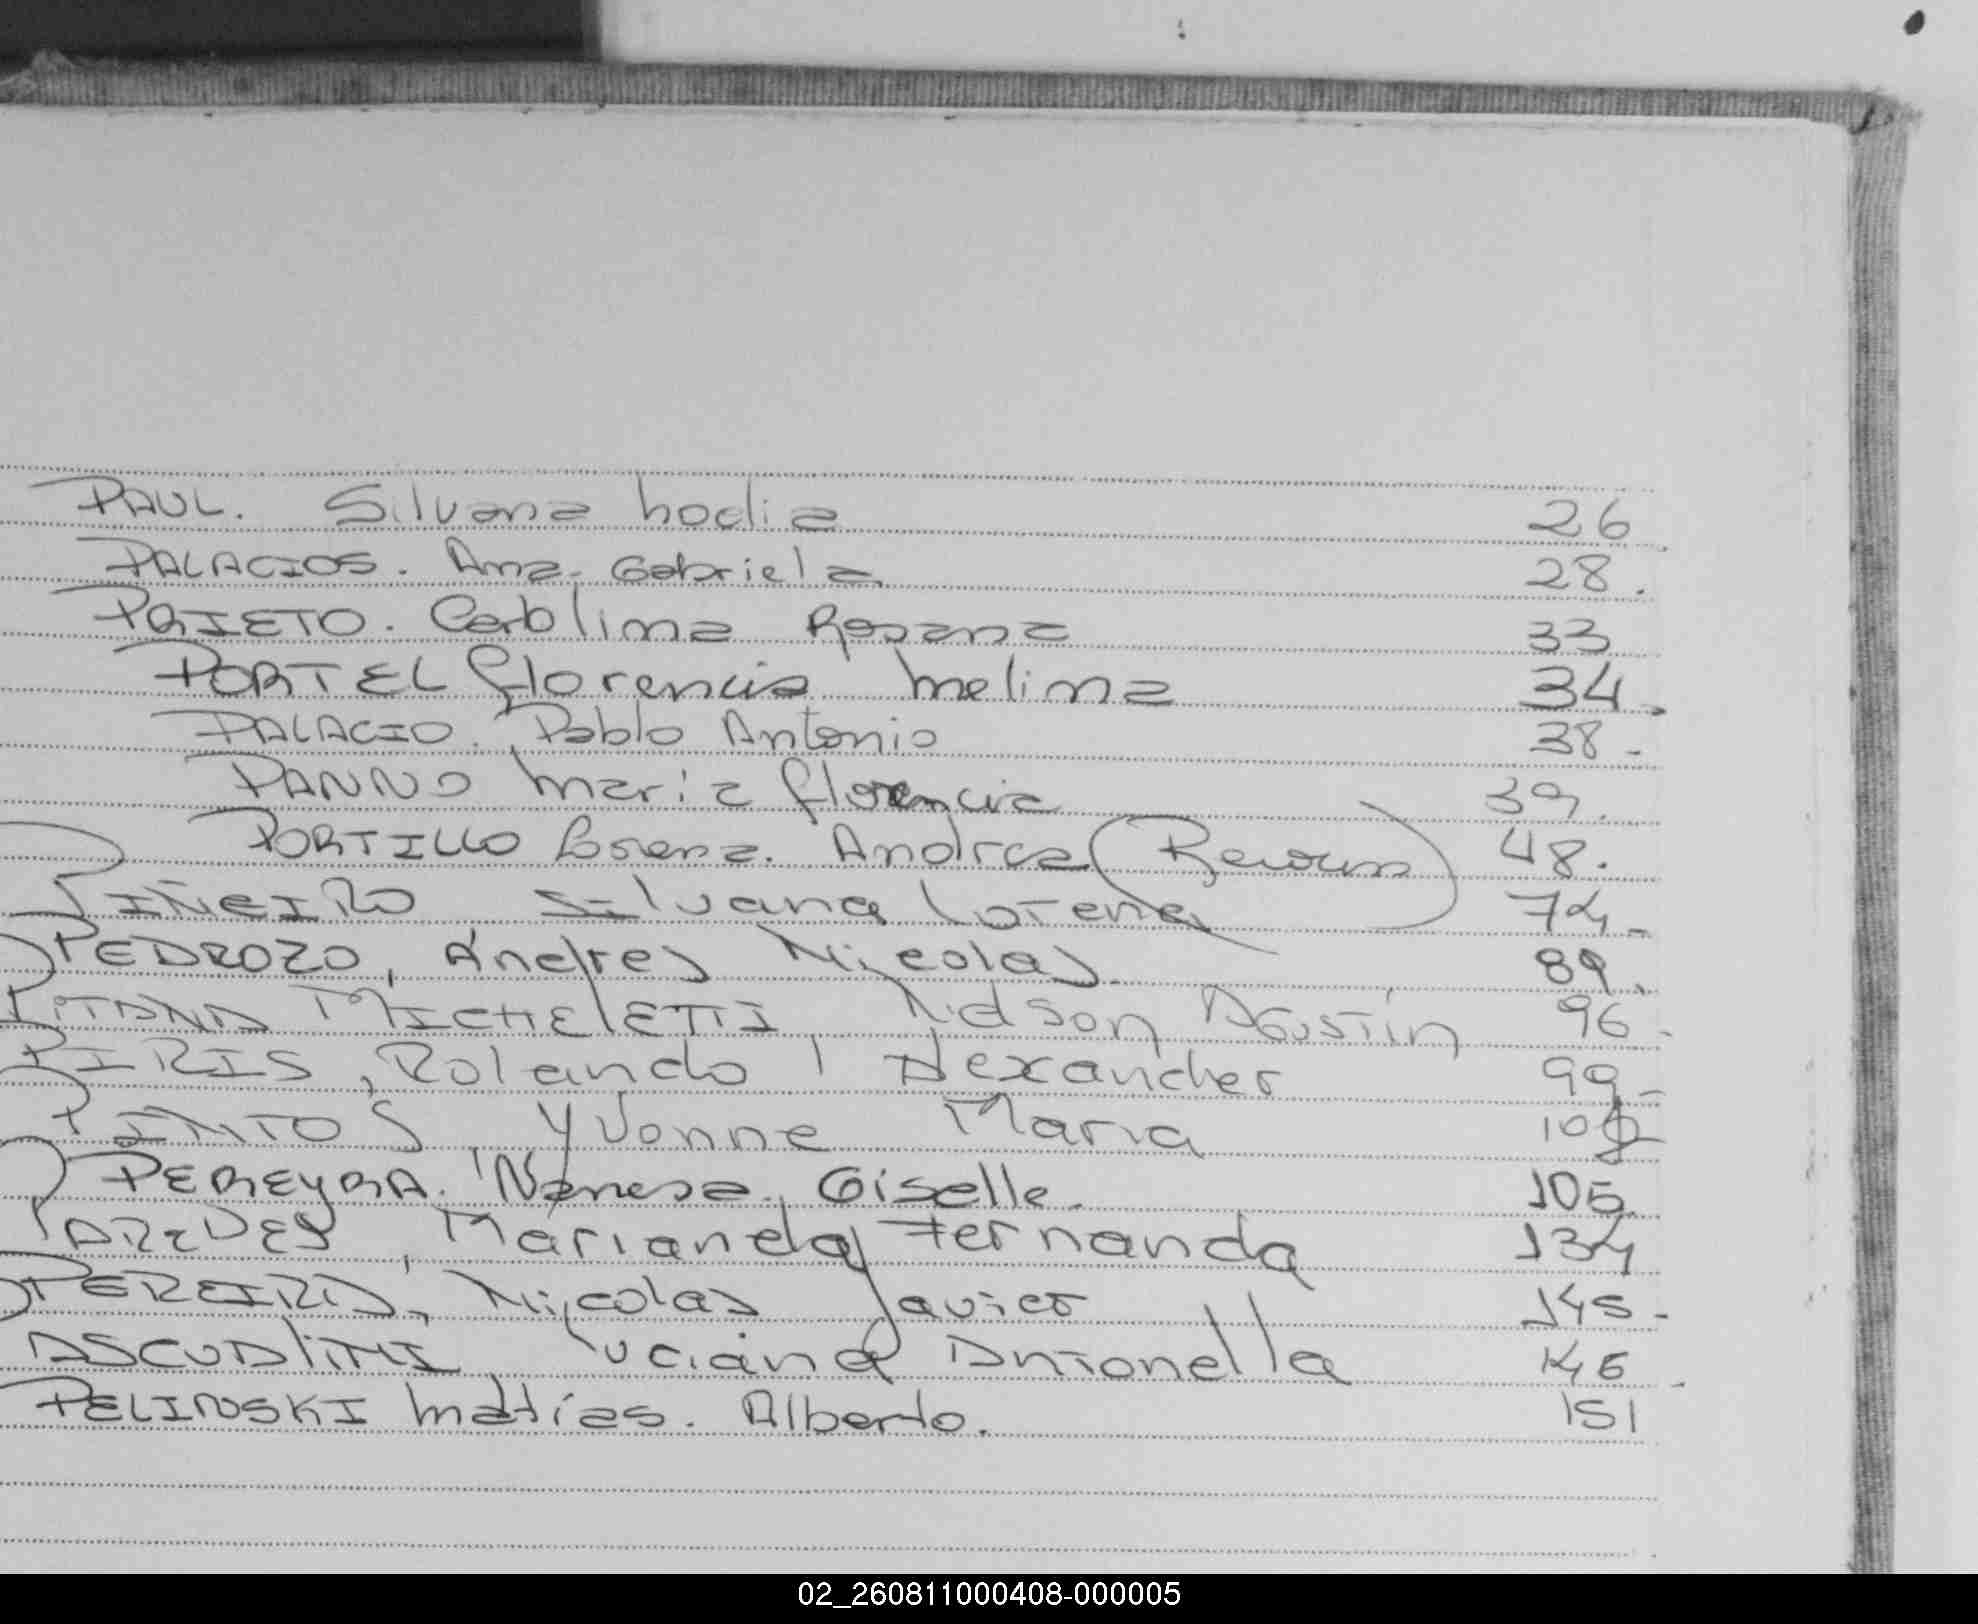 PAUL. Silvana Noelia 26
PALACIOS. Ana Gabriela 28.
PRIETO. Carolina Rosana 33
PORTEL Florencia Melina 34.
PALACIO. Pablo Antonio 38.
PANNO Maria Florencia 39.
PORTILLO Lorena. Andrea 48.
PIÑEIRO Silvana Lorena 74.
PEDROZO, Andres Nicolas. 89.
PITANA MICHELETTI, Nelson Agustín 96.
PIRIS, Rolando Alexander 99.
PINTOS, Yvonne Maria
PEREYRA. Vanesa. Giselle. 105
PAREDES, Marianela Fernanda 134
PEREIRA, Nicolas Javier 145.
Luciana Antonella 146
PELINSKI Matías. Alberto. 151
02_260811000408-000005